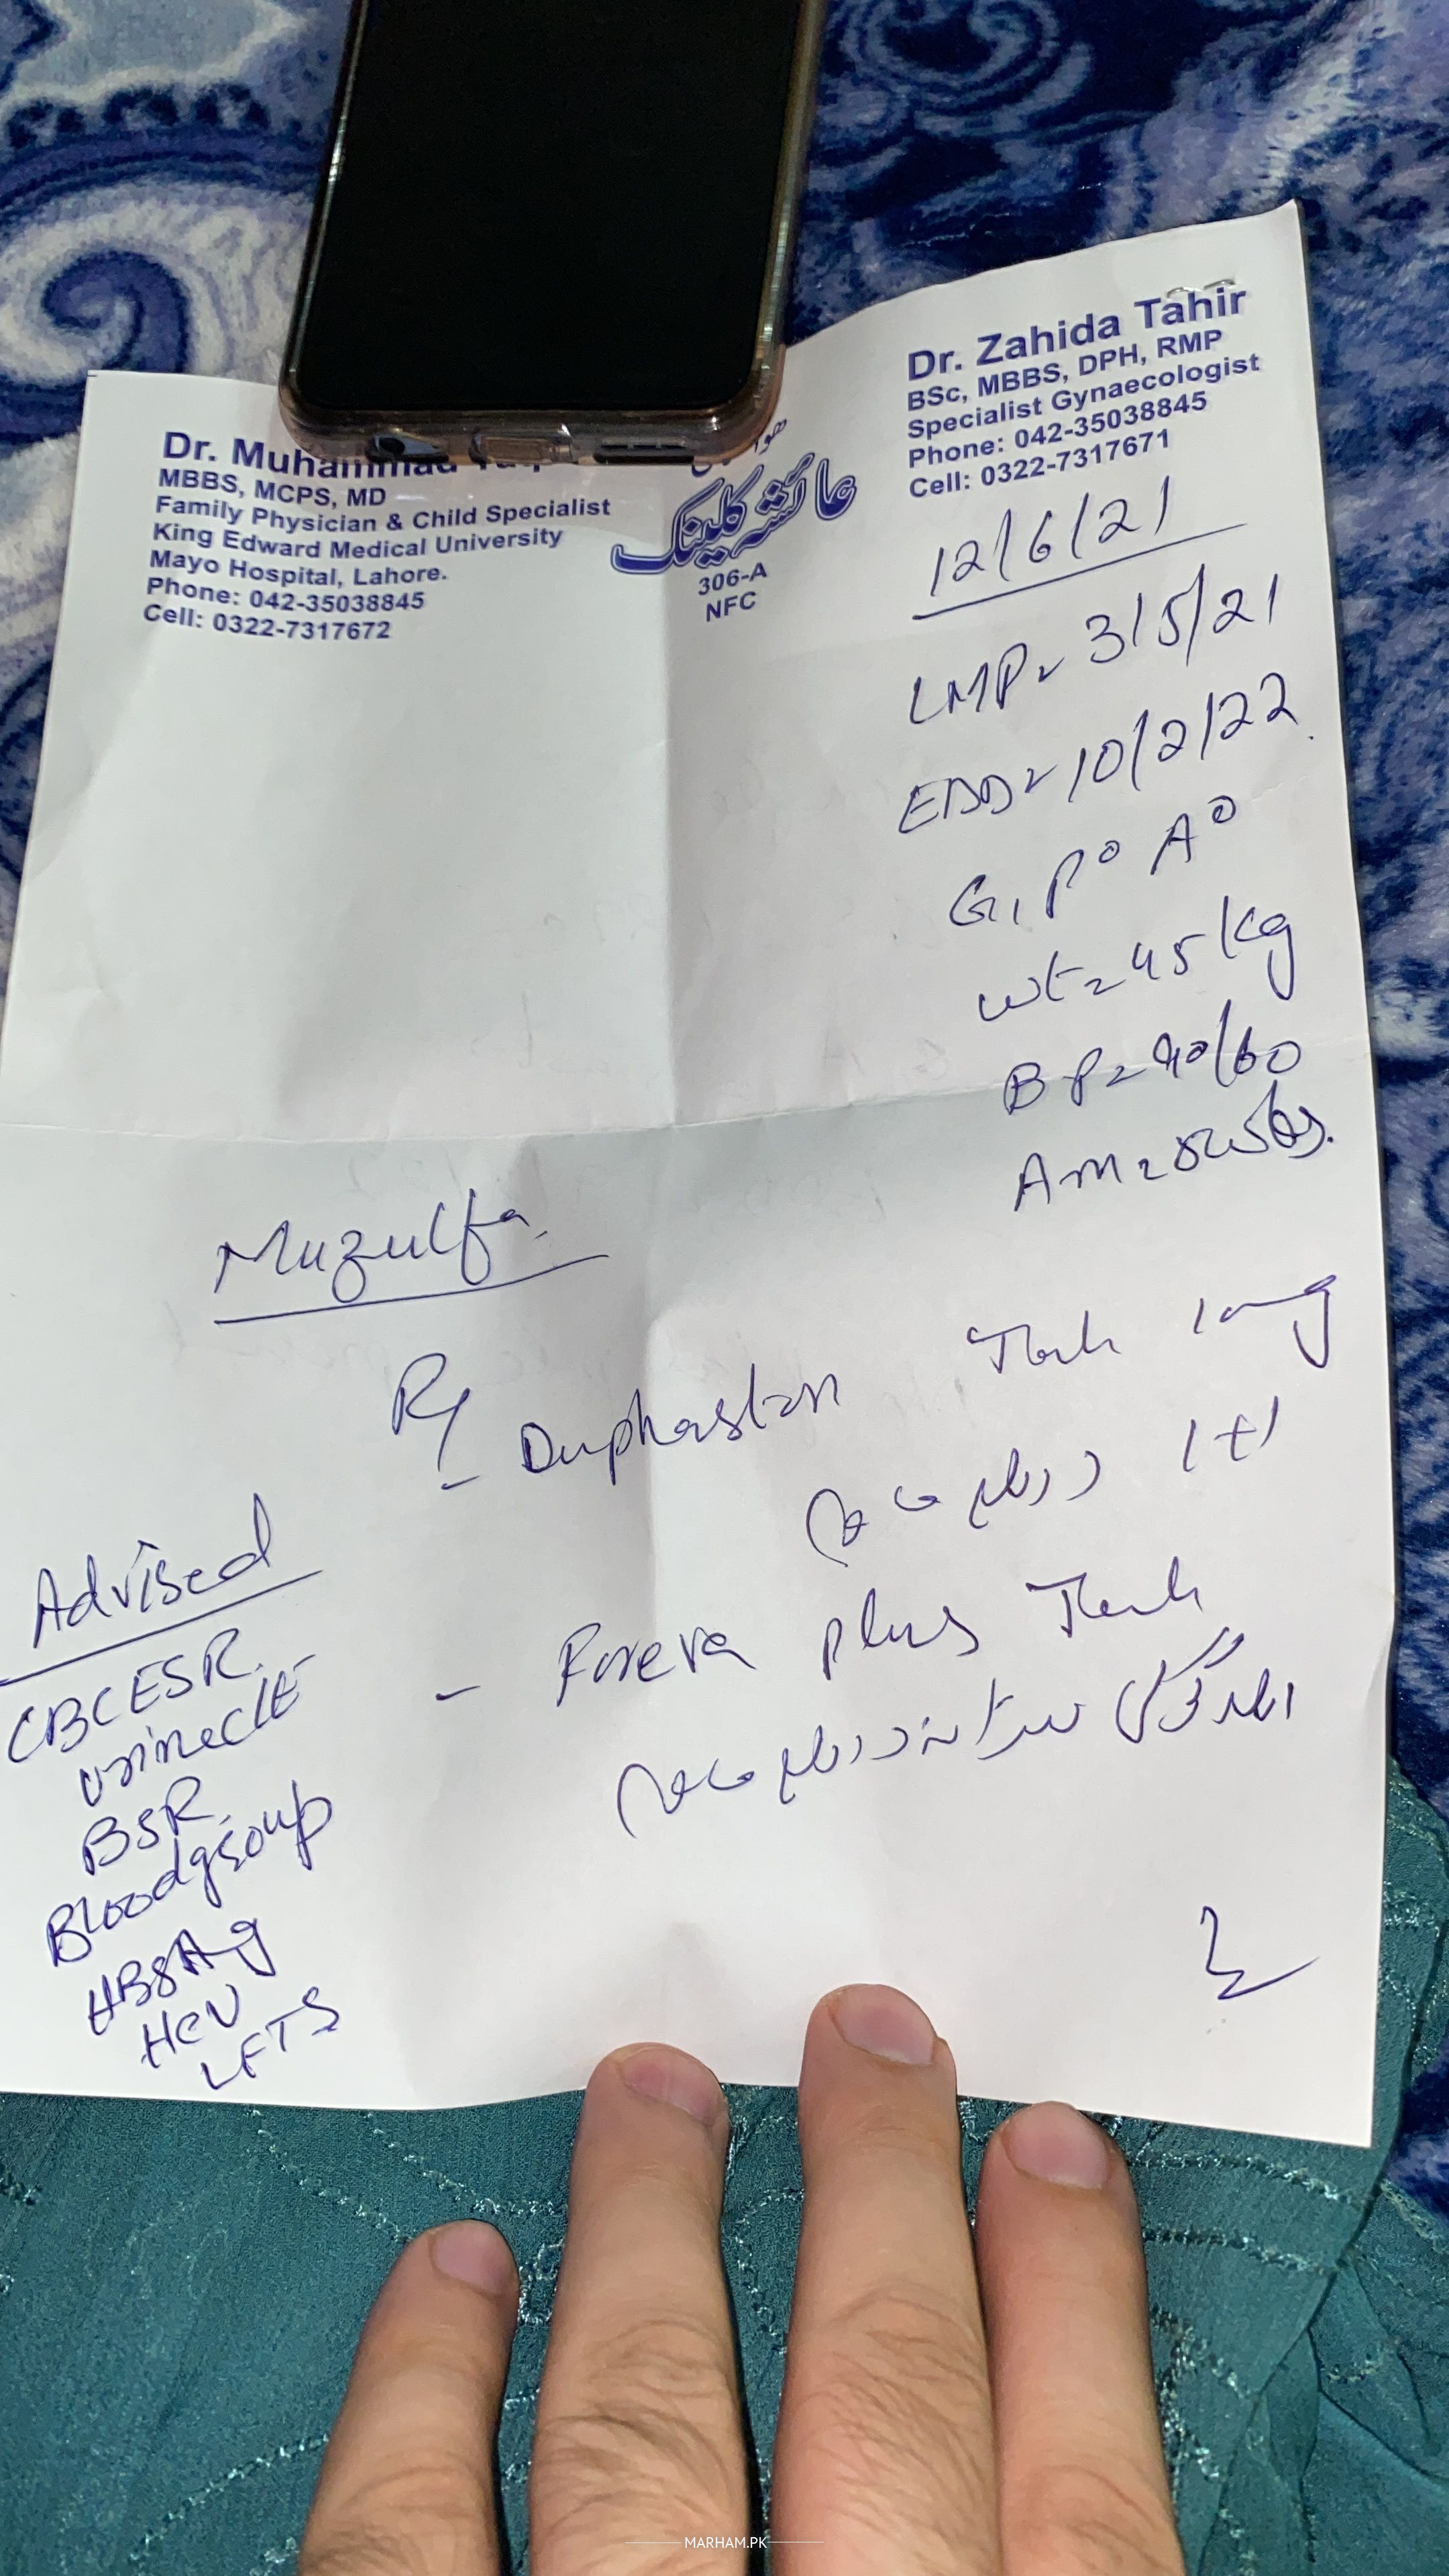 Dr. Muhammad
MBBS, MCPS, MD
Family Physician & Child Specialist
King Edward Medical University
Mayo Hospital, Lahore.
Phone: 042-35038845
Cell: 0322-7317672
عائشہ کلینک
306-A
NFC
Dr. Zahida Tahir
BSc, MBBS, DPH, RMP
Specialist Gynaecologist
Phone: 042-35038845
Cell: 0322-7317671
12/6/21
LMP= 3/5/21
EDD= 10/2/22
G1 P0 A0
wt= 45 kg
BP= 90/60
Muzulfa
Rx
- Duphaston 10mg
1+1
- Foreva plus
Advised
CBC ESR
urine C/E
BSR
Bloodgroup
HBsAg
HCV
LFTS
MARHAM.PK